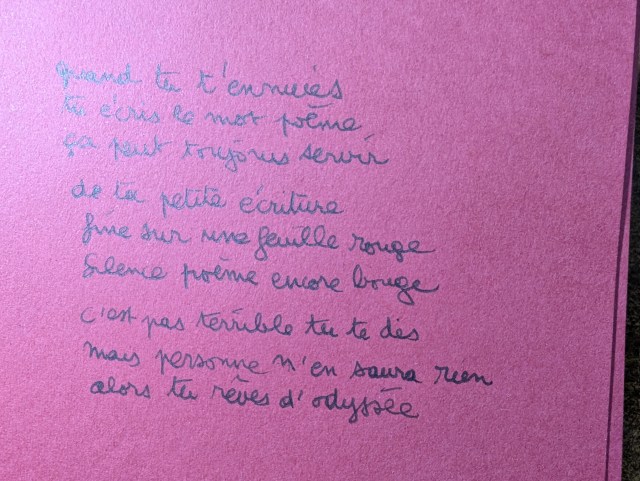 quand tu t'ennuies
tu écris le mot poème,
ça peut toujours servir
de ta petite écriture
fine sur une feuille rouge
silence poème encore bouge
c'est pas terrible tu te dis
mais personne n'en saura rien
alors tu rêves d'odyssée